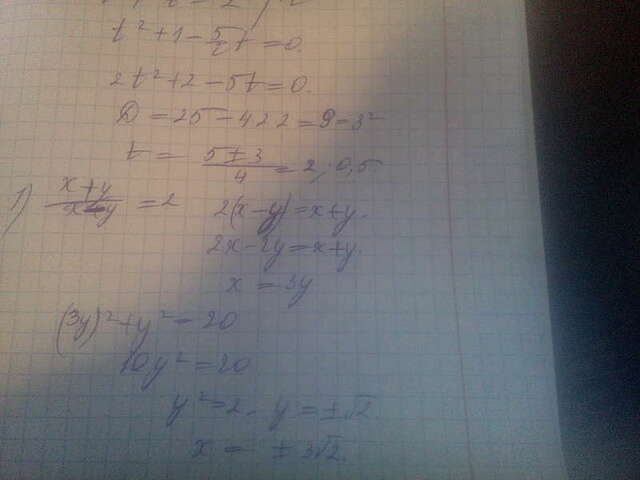 t² + 1 - 5/2 t = 0.
2t² + 2 - 5t = 0.
D = 25 - 4 2 2 = 9 = 3²
t = (5 ± 3)/4 = 2; 0,5
1) (x + y)/(x - y) = 2 2(x - y) = x + y.
2x - 2y = x + y.
x = 3y
(3y)² + y² = 20
10y² = 20
y² = 2. y = ±√2
x = ±3√2.